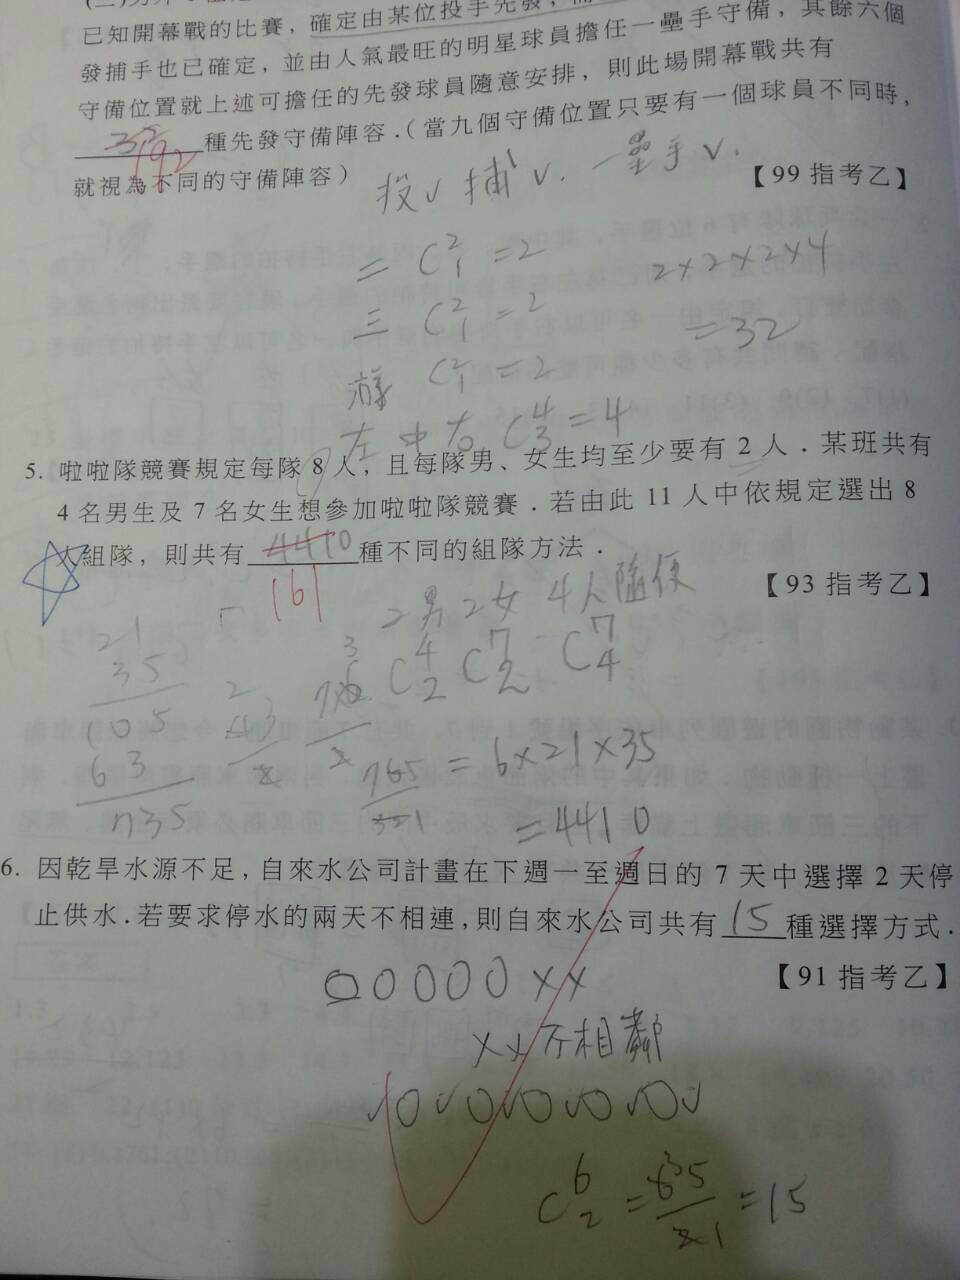 已知開幕戰的比賽，確定由某位投手先發，
發捕手也已確定，並由人氣最旺的明星球員擔任一壘手守備，其餘六個
守備位置就上述可擔任的先發球員隨意安排，則此場開幕戰共有
192 種先發守備陣容．（當九個守備位置只要有一個球員不同時，
就視為不同的守備陣容）
【99 指考乙】
投 ✓ 捕 ✓. 一壘手 ✓.
二 C²₁ = 2
三 C²₁ = 2
游 C²₁ = 2
左 中 右 C⁴₃ = 4
2×2×2×4
= 32
5. 啦啦隊競賽規定每隊 8 人，且每隊男、女生均至少要有 2 人．某班共有
4 名男生及 7 名女生想參加啦啦隊競賽．若由此 11 人中依規定選出 8
人組隊，則共有 4410 種不同的組隊方法．
161
【93 指考乙】
2男 2女 4人隨便
C⁴₂ C⁷₂ C⁷₄
= 6×21×35
= 4410
21
35
105
63
735
6. 因乾旱水源不足，自來水公司計畫在下週一至週日的 7 天中選擇 2 天停
止供水．若要求停水的兩天不相連，則自來水公司共有 15 種選擇方式．
【91 指考乙】
○○○○○××
××不相鄰
✓○✓○✓○✓○✓○✓
C⁶₂ = 6 5 / 2 1 = 15